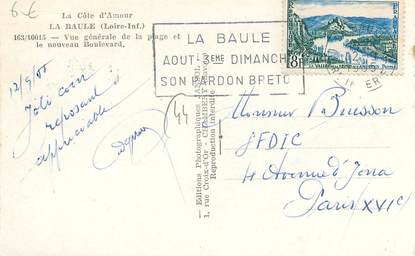 6€
La Côte d'Amour
LA BAULE (Loire-Inf.)
163/10015 — Vue générale de la plage et
le nouveau Boulevard.
LA BAULE
AOUT 3EME DIMANCHE
SON PARDON BRETO
8F
12/9/55
Joli coin
reposant
appréciable
44
— Editions Photographiques
1, rue Croix-d'Or - CHAMBÉRY
Reproduction interdite
Monsieur Buisson
SFDIC
4 Avenue d'Jena
Paris XVIe